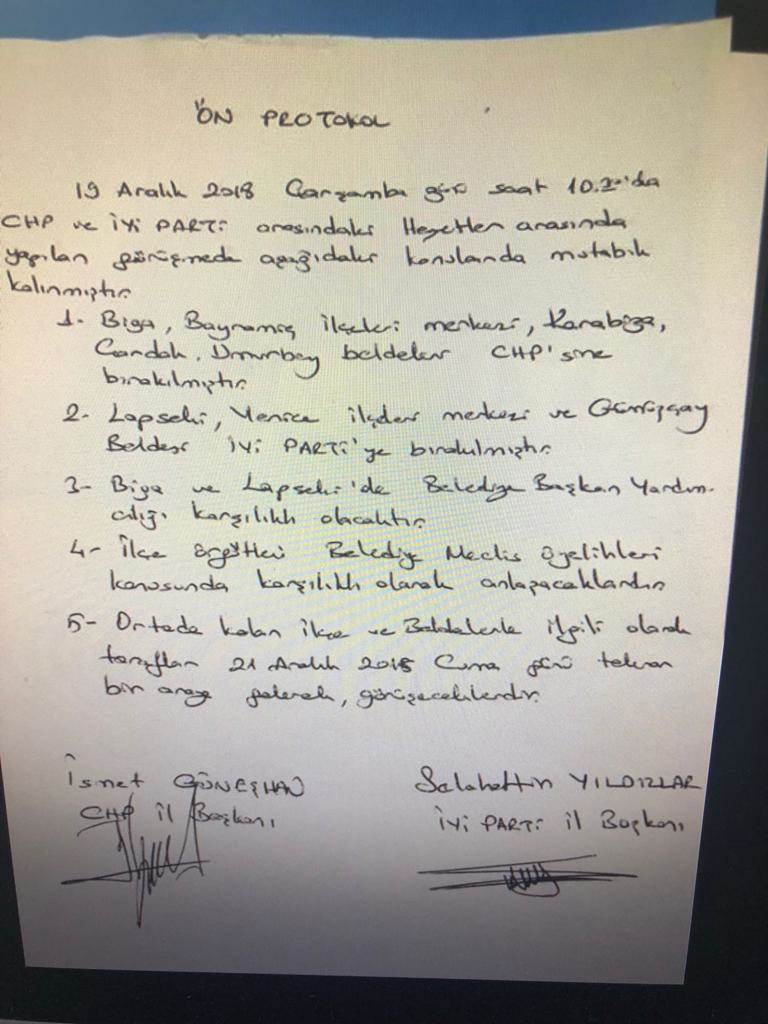 ÖN PROTOKOL
19 Aralık 2018 Çarşamba günü saat 10.20'da
CHP ve İYİ PARTİ arasındaki Heyetler arasında
yapılan görüşmede aşağıdaki konularda mutabık
kalınmıştır.
1- Biga, Bayramiç ilçeleri merkezi, Karabiga,
Çardak, Umurbey beldeleri CHP'sine
bırakılmıştır.
2- Lapseki, Yenice ilçeleri merkezi ve Gümüşçay
Beldesi İYİ PARTİ'ye bırakılmıştır.
3- Biga ve Lapseki'de Belediye Başkan Yardım-
cılığı karşılıklı olacaktır.
4- İlçe örgütleri Belediye Meclis üyelikleri
konusunda karşılıklı olarak anlaşacaklardır.
5- Ortada kalan ilçe ve Beldelerle ilgili olarak
taraflar 21 Aralık 2018 Cuma günü tekrar
bir araya gelerek, görüşeceklerdir.
İsmet GÜNEŞHAN Selahettin YILDIZLAR
CHP il Başkanı İYİ PARTİ il Başkanı